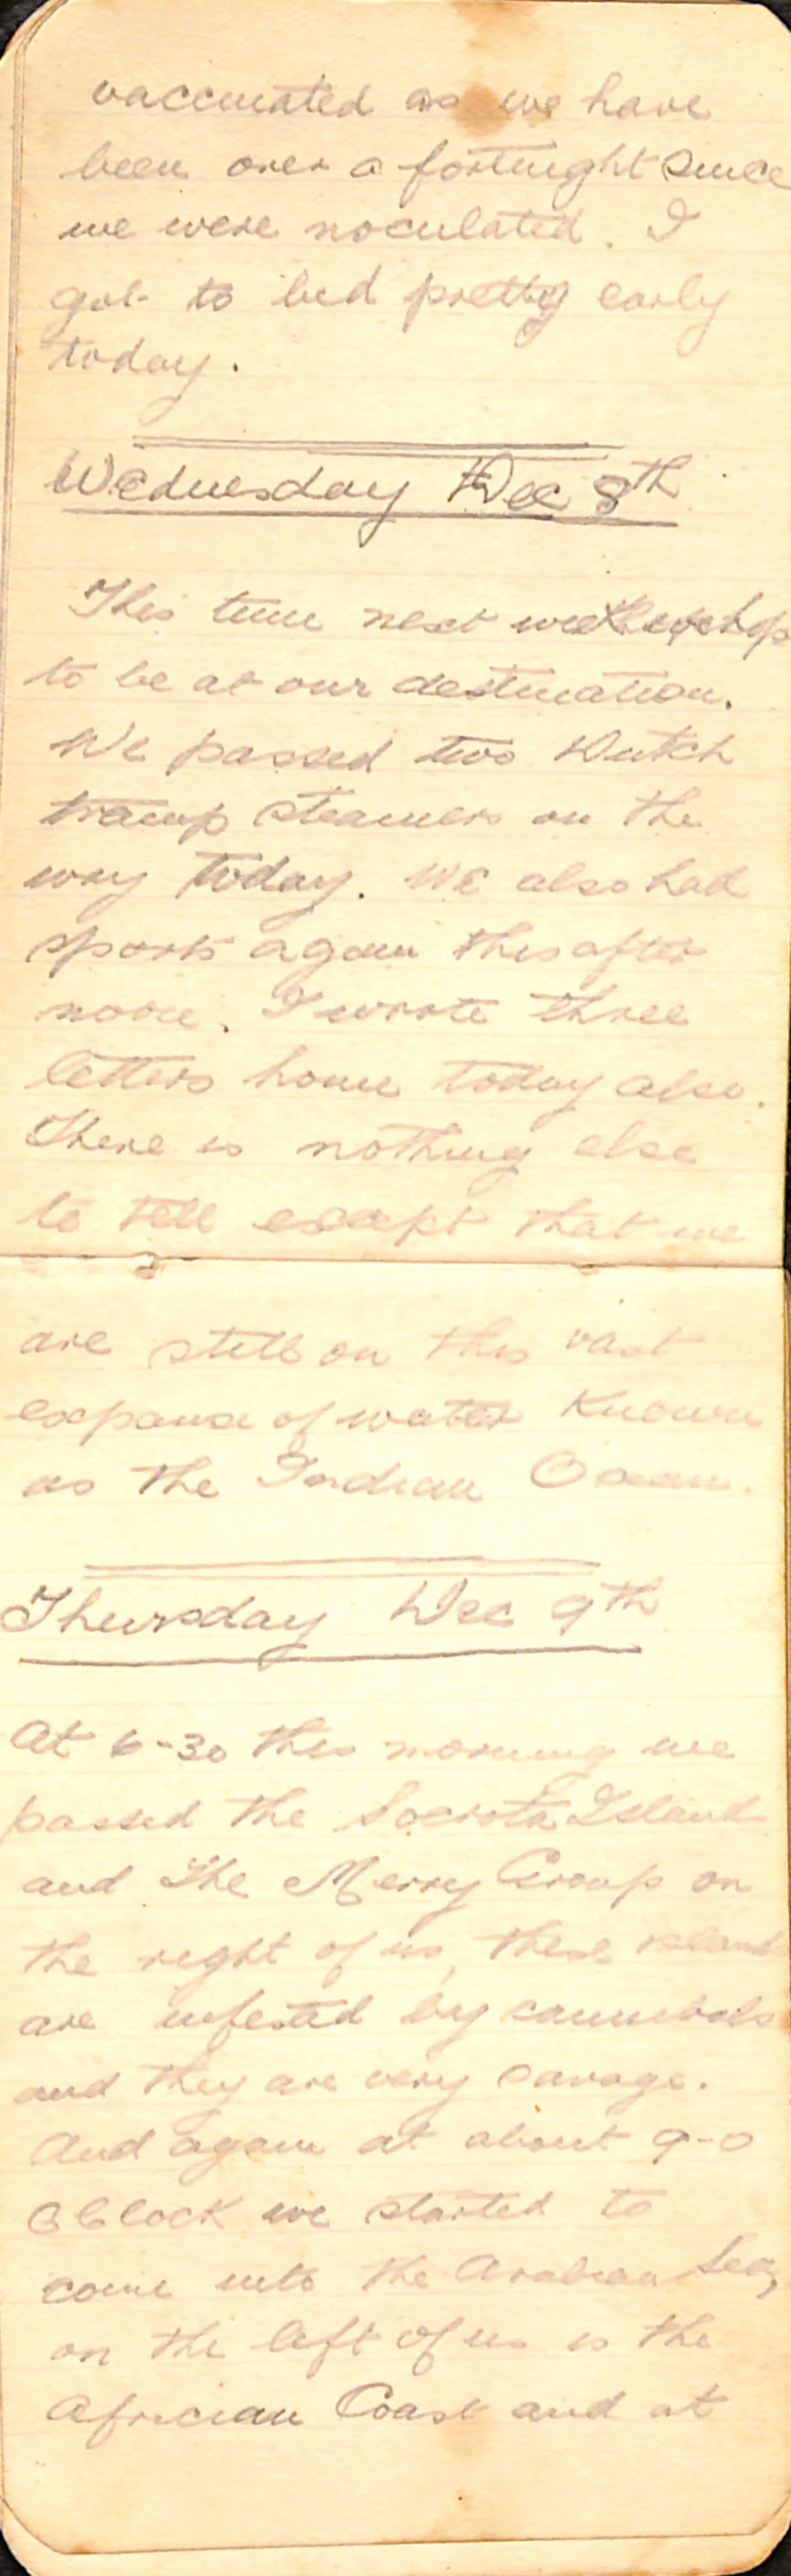 vaccinated as we have
been over a fortnight since
we were noculated. I
got to bed pretty early
today.
Wednesday Dec 8th
This time next week we hope
to be at our destination.
We passed two Dutch
tramp steamers on the
way today. We also had
sports again this after
noon. I wrote three
letters home today also.
There is nothing else
to tell except that we
are still on this vast
expanse of water known
as the Indian Ocean.
Thursday Dec 9th
At 6-30 this morning we
passed the Socrota Island
and the Merry Group on
the right of us, these islands
are infested by cannibals
and they are very savage.
And again at about 9-0
Oclock we started to
come into the Arabian Sea,
on the left of us is the
Africian Coast and at